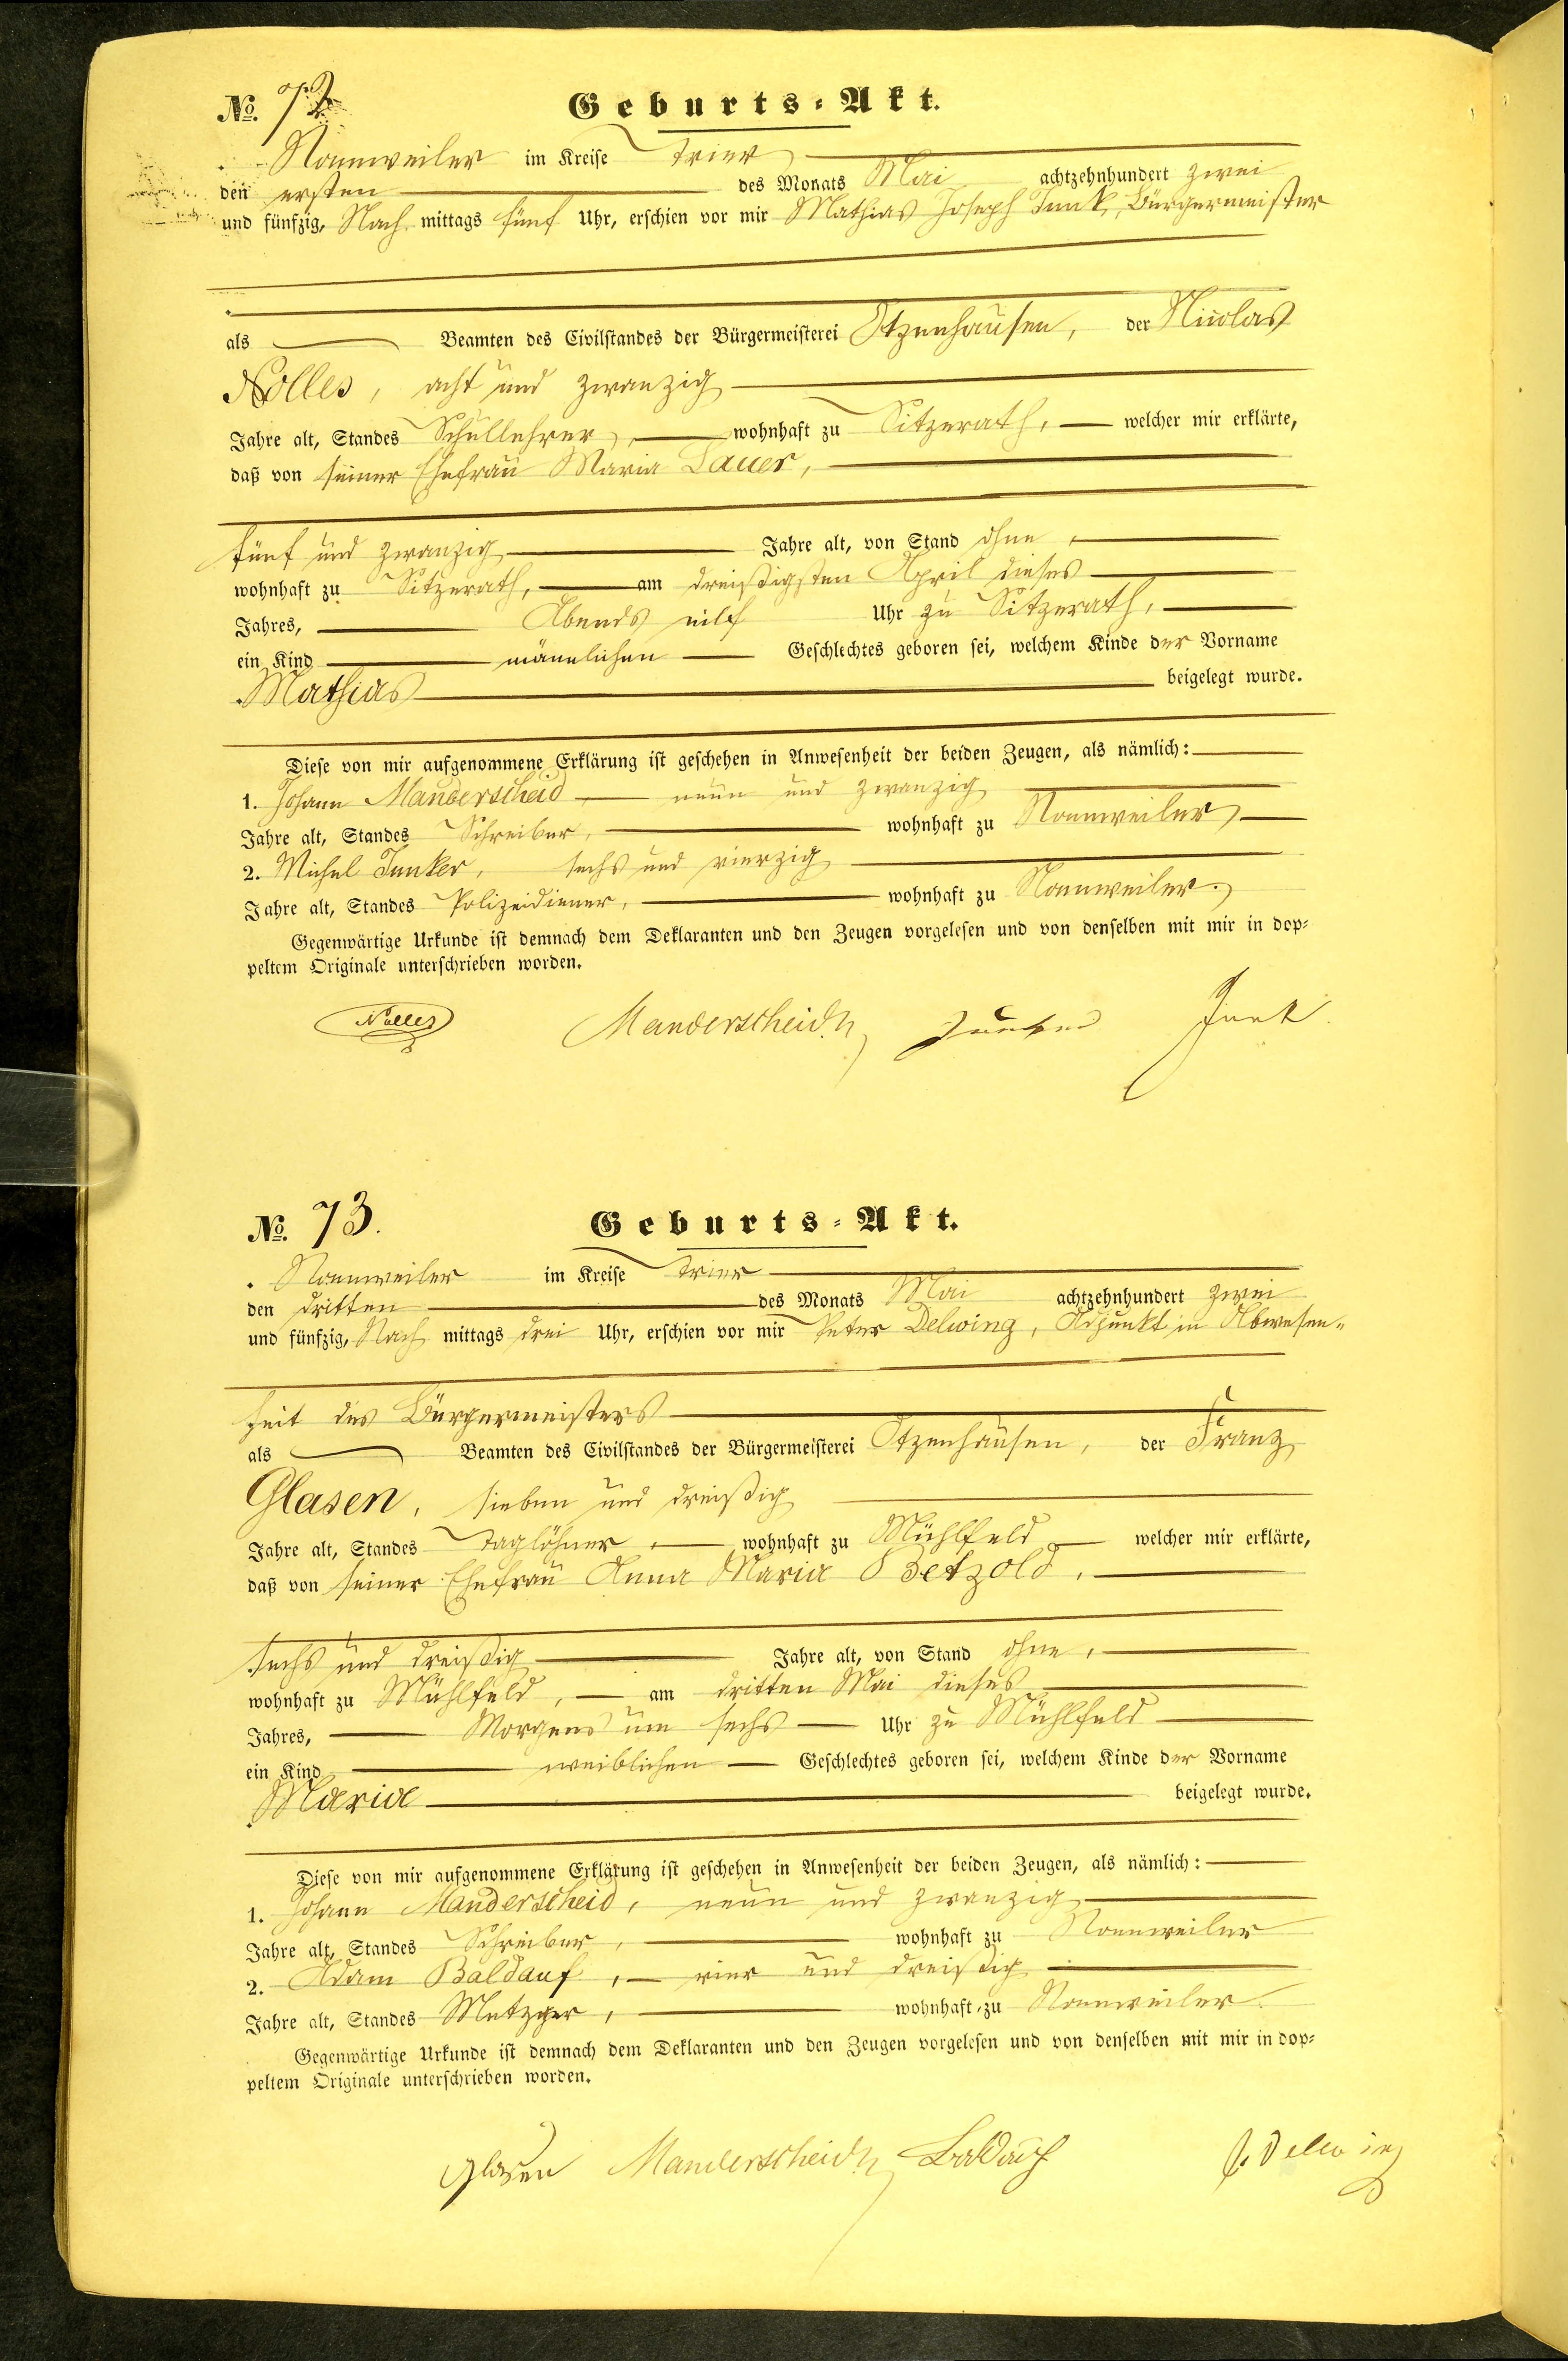 No. 72 Geburts=Akt.
Nonnweiler im Kreise Trier
den ersten des Monats Mai achtzehnhundert zwei
und fünfzig, Nach mittags fünf Uhr, erschien vor mir Mathias Joseph Junk, Bürgermeister
als Beamten des Civilstandes der Bürgermeisterei Otzenhausen, der Nicolas
Nolles, acht und zwanzig
Jahre alt, Standes Schullehrer, wohnhaft zu Sitzerath, welcher mir erklärte,
daß von seiner Ehefrau Maria Lauer,
fünf und zwanzig Jahre alt, von Stand ohne
wohnhaft zu Sitzerath, am dreißigsten April dieses
Jahres, Abends eilf Uhr zu Sitzerath,
ein Kind männlichen Geschlechtes geboren sei, welchem Kinde der Vorname
Mathias beigelegt wurde.
Diese von mir aufgenommene Erklärung ist geschehen in Anwesenheit der beiden Zeugen, als nämlich:
1. Johann Manderscheid neun und zwanzig
Jahre alt, Standes Schreiber, wohnhaft zu Nonnweiler
2. Michel Junker, sechs und vierzig
Jahre alt, Standes Polizeidiener, wohnhaft zu Nonnweiler.
Gegenwärtige Urkunde ist demnach dem Deklaranten und den Zeugen vorgelesen und von denselben mit mir in dop=
peltem Originale unterschrieben worden.
Nolles Manderscheid Junker Junk
No. 73. Geburts=Akt.
Nonnweiler im Kreise Trier
den dritten des Monats Mai achtzehnhundert zwei
und fünfzig, Nach mittags drei Uhr, erschien vor mir Peter Delwing, Adjunkt in Abwesen=
heit des Bürgermeisters
als Beamten des Civilstandes der Bürgermeisterei Otzenhausen, der Franz
Glasen, sieben und dreißig
Jahre alt, Standes Taglöhner, wohnhaft zu Mühlfeld welcher mir erklärte,
daß von seiner Ehefrau Anna Maria Betzold,
sechs und dreißig Jahre alt, von Stand ohne,
wohnhaft zu Mühlfeld, am dritten Mai dieses
Jahres, Morgens um sechs Uhr zu Mühlfeld
ein Kind weiblichen Geschlechtes geboren sei, welchem Kinde der Vorname
Maria beigelegt wurde.
Diese von mir aufgenommene Erklärung ist geschehen in Anwesenheit der beiden Zeugen, als nämlich:
1. Johann Manderscheid, neun und zwanzig
Jahre alt, Standes Schreiber, wohnhaft zu Nonnweiler
2. Adam Baldauf, vier und dreißig
Jahre alt, Standes Metzger, wohnhaft zu Nonnweiler
Gegenwärtige Urkunde ist demnach dem Deklaranten und den Zeugen vorgelesen und von denselben mit mir in dop=
peltem Originale unterschrieben worden.
Glasen Manderscheid Baldauf P. Delwing